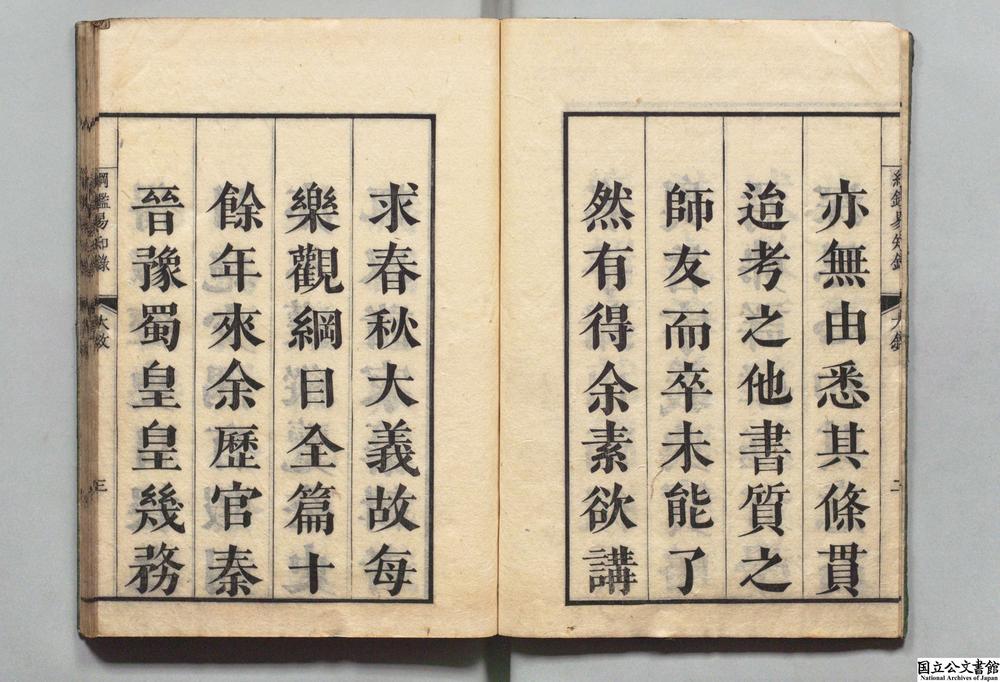 亦無由悉其條貫
迨考之他書質之
師友而卒未能了
然有得余素欲講
求春秋大義故每
樂觀綱目全篇十
餘年來余歷官秦
晉豫蜀皇皇幾務
綱鑑易知錄
大敘
三
国立公文書館
National Archives of Japan